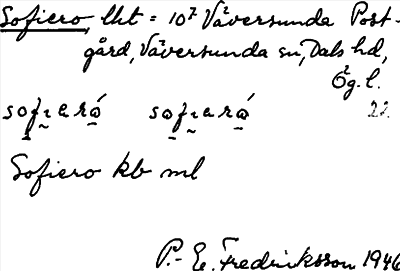 Sofiero, lht = 10⁷ Väversunda Post-
gård, Väversunda sn, Dals hd,
Ög. l.
22
Sofiero kb ml
P.-E. Fredriksson 1946